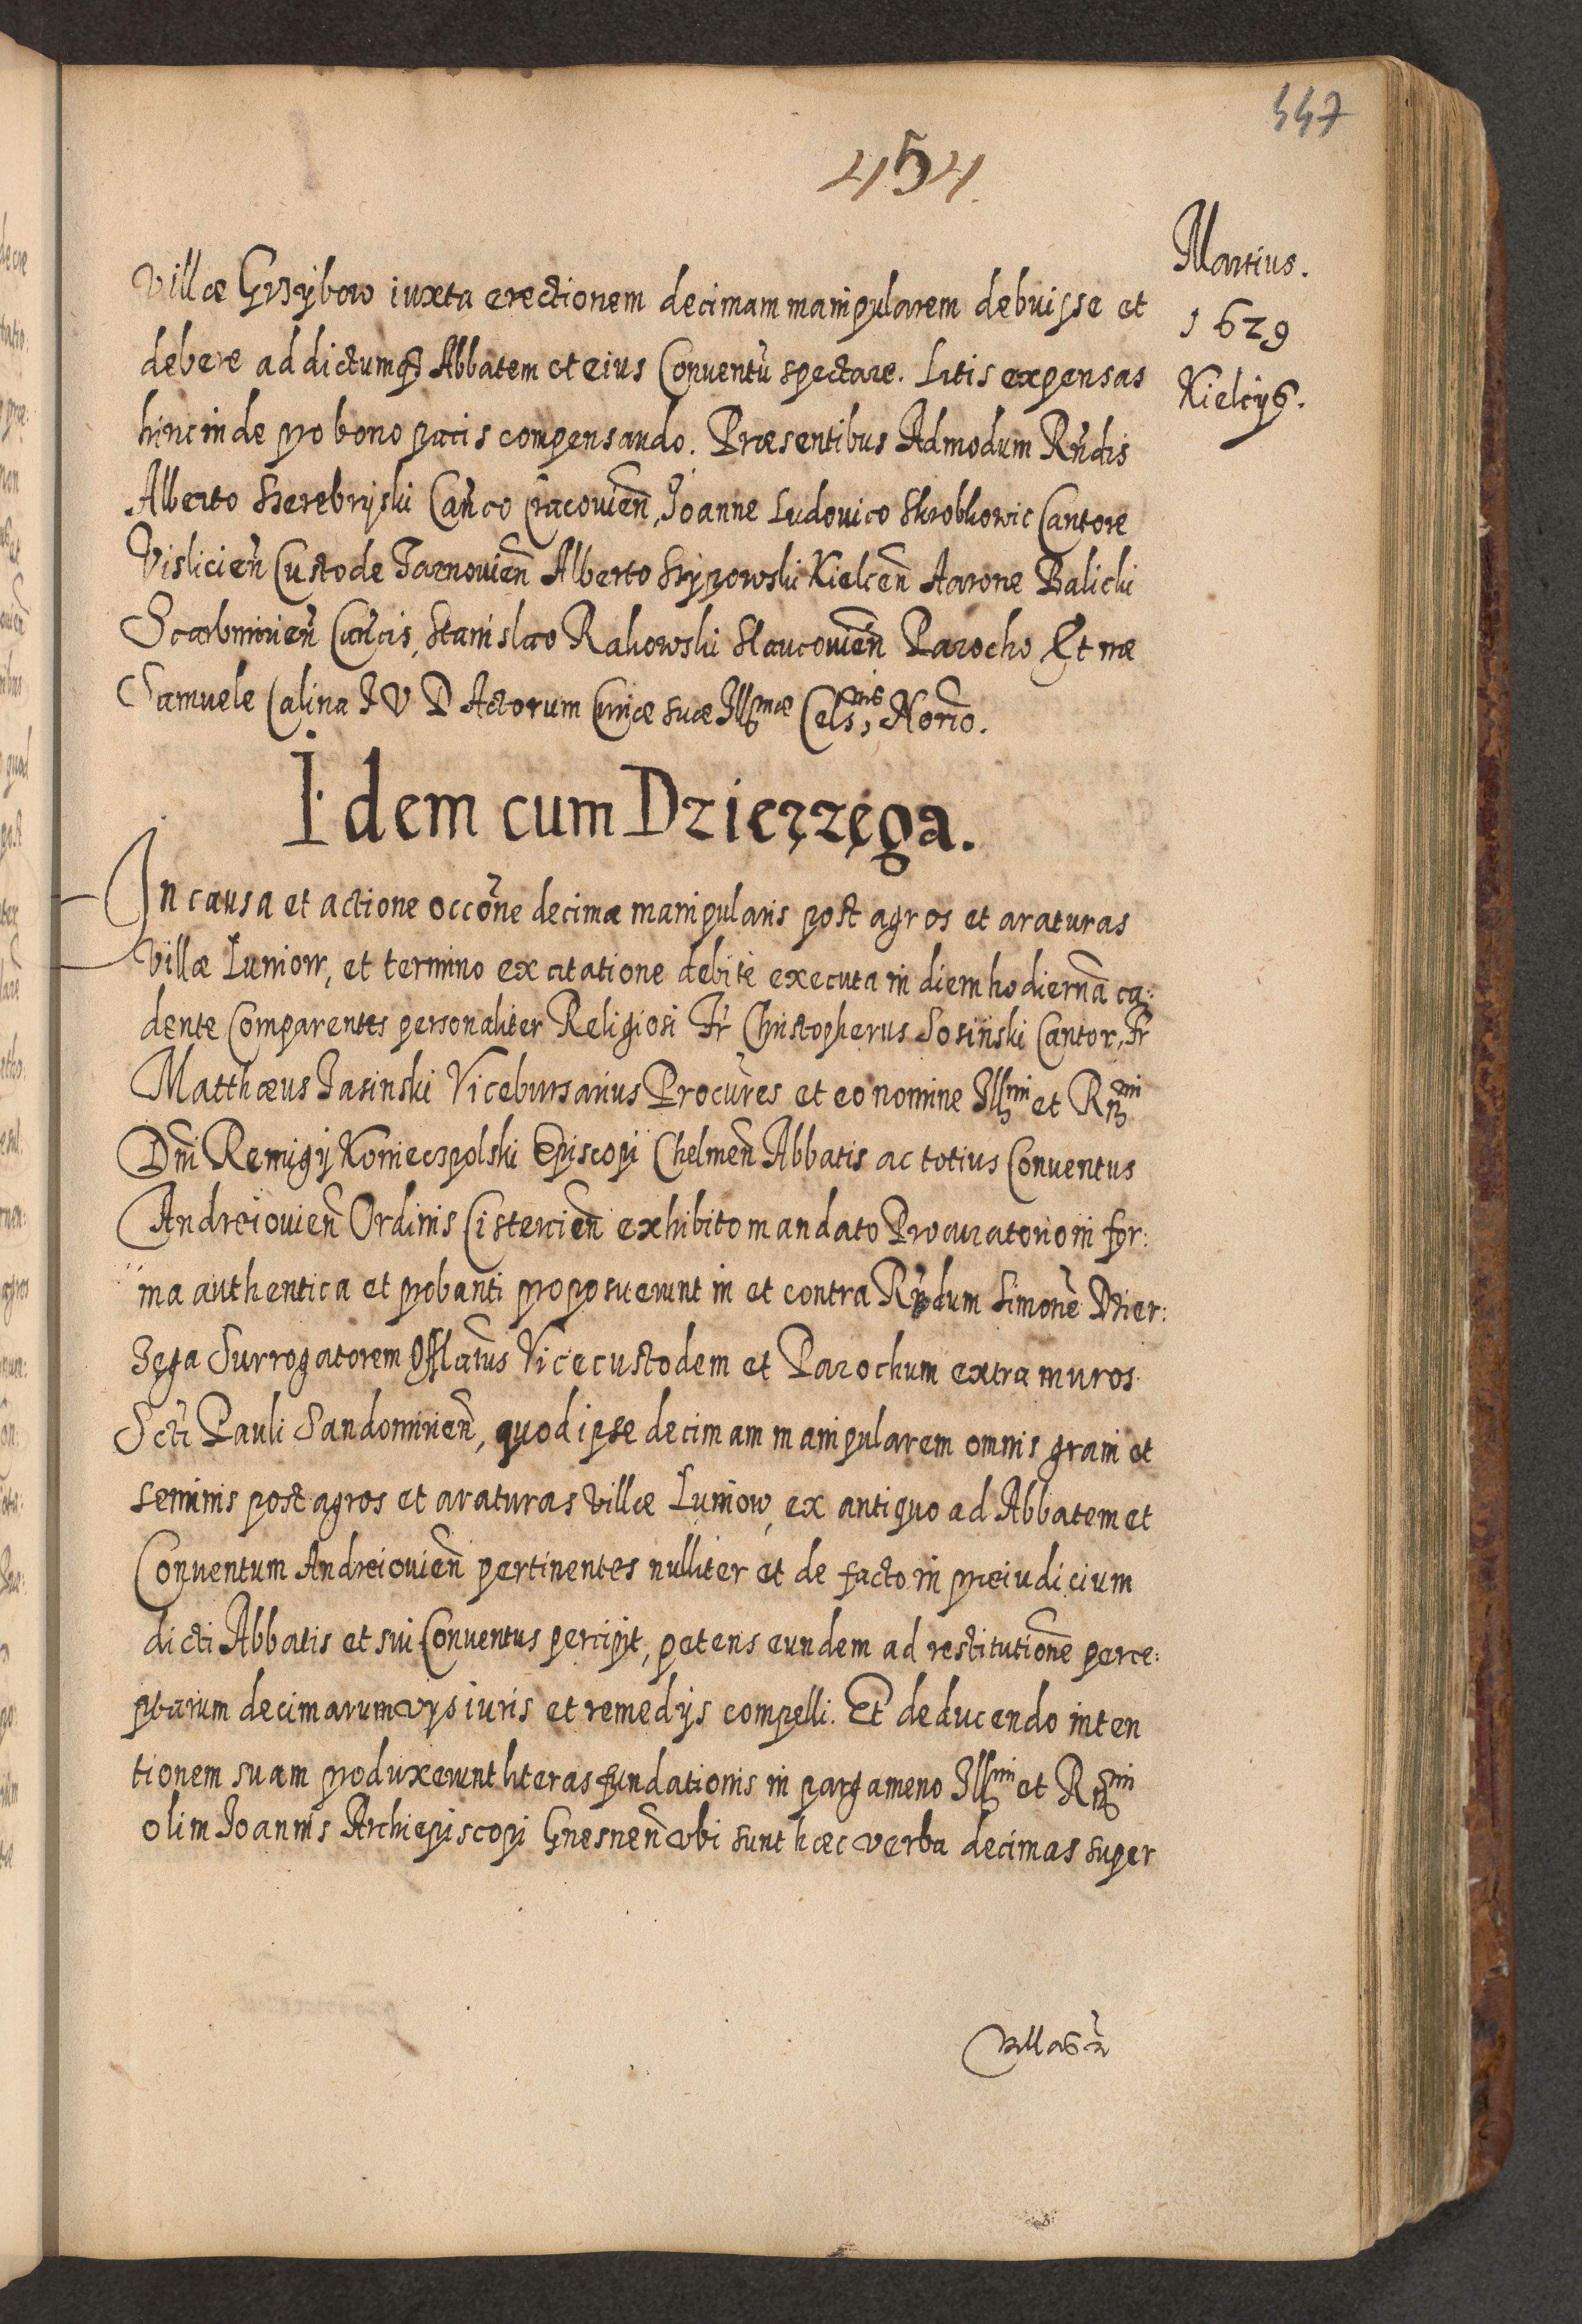 447
454.
Martius.
1629
Kielcijs.
Villæ Grzÿbow iuxta erectionem decimam manipularem debuisse et
debere ad dictumq́ Abbatem et eius Conventũ spectare. Litis expensas
hinc inde pro bono pacis compensando. Præsentibus Admodum Rñdis
Alberto Serebrijski Cañco Cracovieñ, Joanne Ludovico Skrobkowic Cantore
Vislicieñ Custode Tarnovieñ Alberto Szÿpowski Kielceñ Aarone Balicki
Scarbmirieñ Cañcis, Stanislao Rakowski Slaucovieñ Parocho Et me
Samuele Calina I V D Actorum Curiæ suæ Illmæ Celsnis Norio.
Idem cum Dzierzęga.
In causa et actione occõne decimæ manipularis post agros et araturas
villæ Luniow, et termino ex citatione debitè executa in diem hodiernã ca:
dente Comparentes personaliter Religiosi Fr̃ Christopherus Sosiński Cantor, Fr
Matthæus Jasinski Vicebursarius Procũres et eo nomine Illmi et Rmi
Dñi Remigij Konieczpolski Episcopi Chelmeñ Abbatis ac totius Conventus
Andreiovieñ Ordinis Cistercieñ exhibito mandato Procuratorio in for:
ma authentica et probanti proposuerunt in et contra Rñdum Simonẽ Dzier:
zęga Surrogatorem Offlatus Vicecustodem et Parochum extra muros
Scti Pauli Sandomirieñ, quod ipse decimam manipularem omnis grani et
seminis post agros et araturas villæ Luniow, ex antiquo ad Abbatem et
Conventum Andreiovieñ pertinentes nulliter et de facto in præiudicium
dicti Abbatis et sui Conventus percipit, petens eundem ad restitutionẽ perce:
ptarum decimarum vijs iuris et remedijs compelli. Et deducendo inten
tionem suam produxerunt literas fundationis in pargameno Illmi et Rmi
olim Joannis Archiepiscopi Gnesneñ vbi sunt hæc verba decimas super